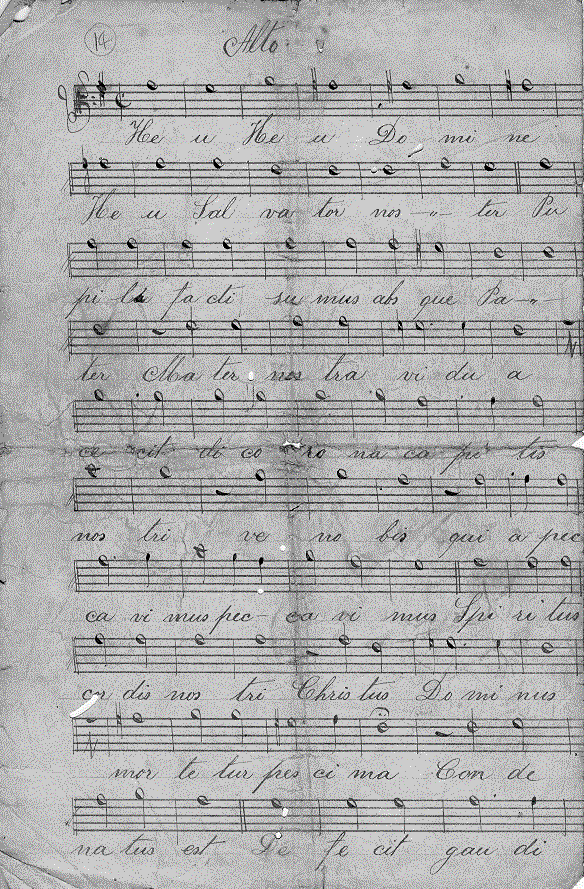 14
Alto
He u He u Do mi ne
He u Sal va tor nos -"- ter Pu
pi li fa cti su mus abs que Pa -"-
ter Ma ter nos tra vi du a
ce cit di co ro na ca pi tis
nos tri ve no bis qui a pec
ca vi mus pec- ca vi mus Spi ri tus
cor dis nos tri Chris tus Do mi nus
mor te tur pes ci ma Con de
na tus est De fe cit gau di